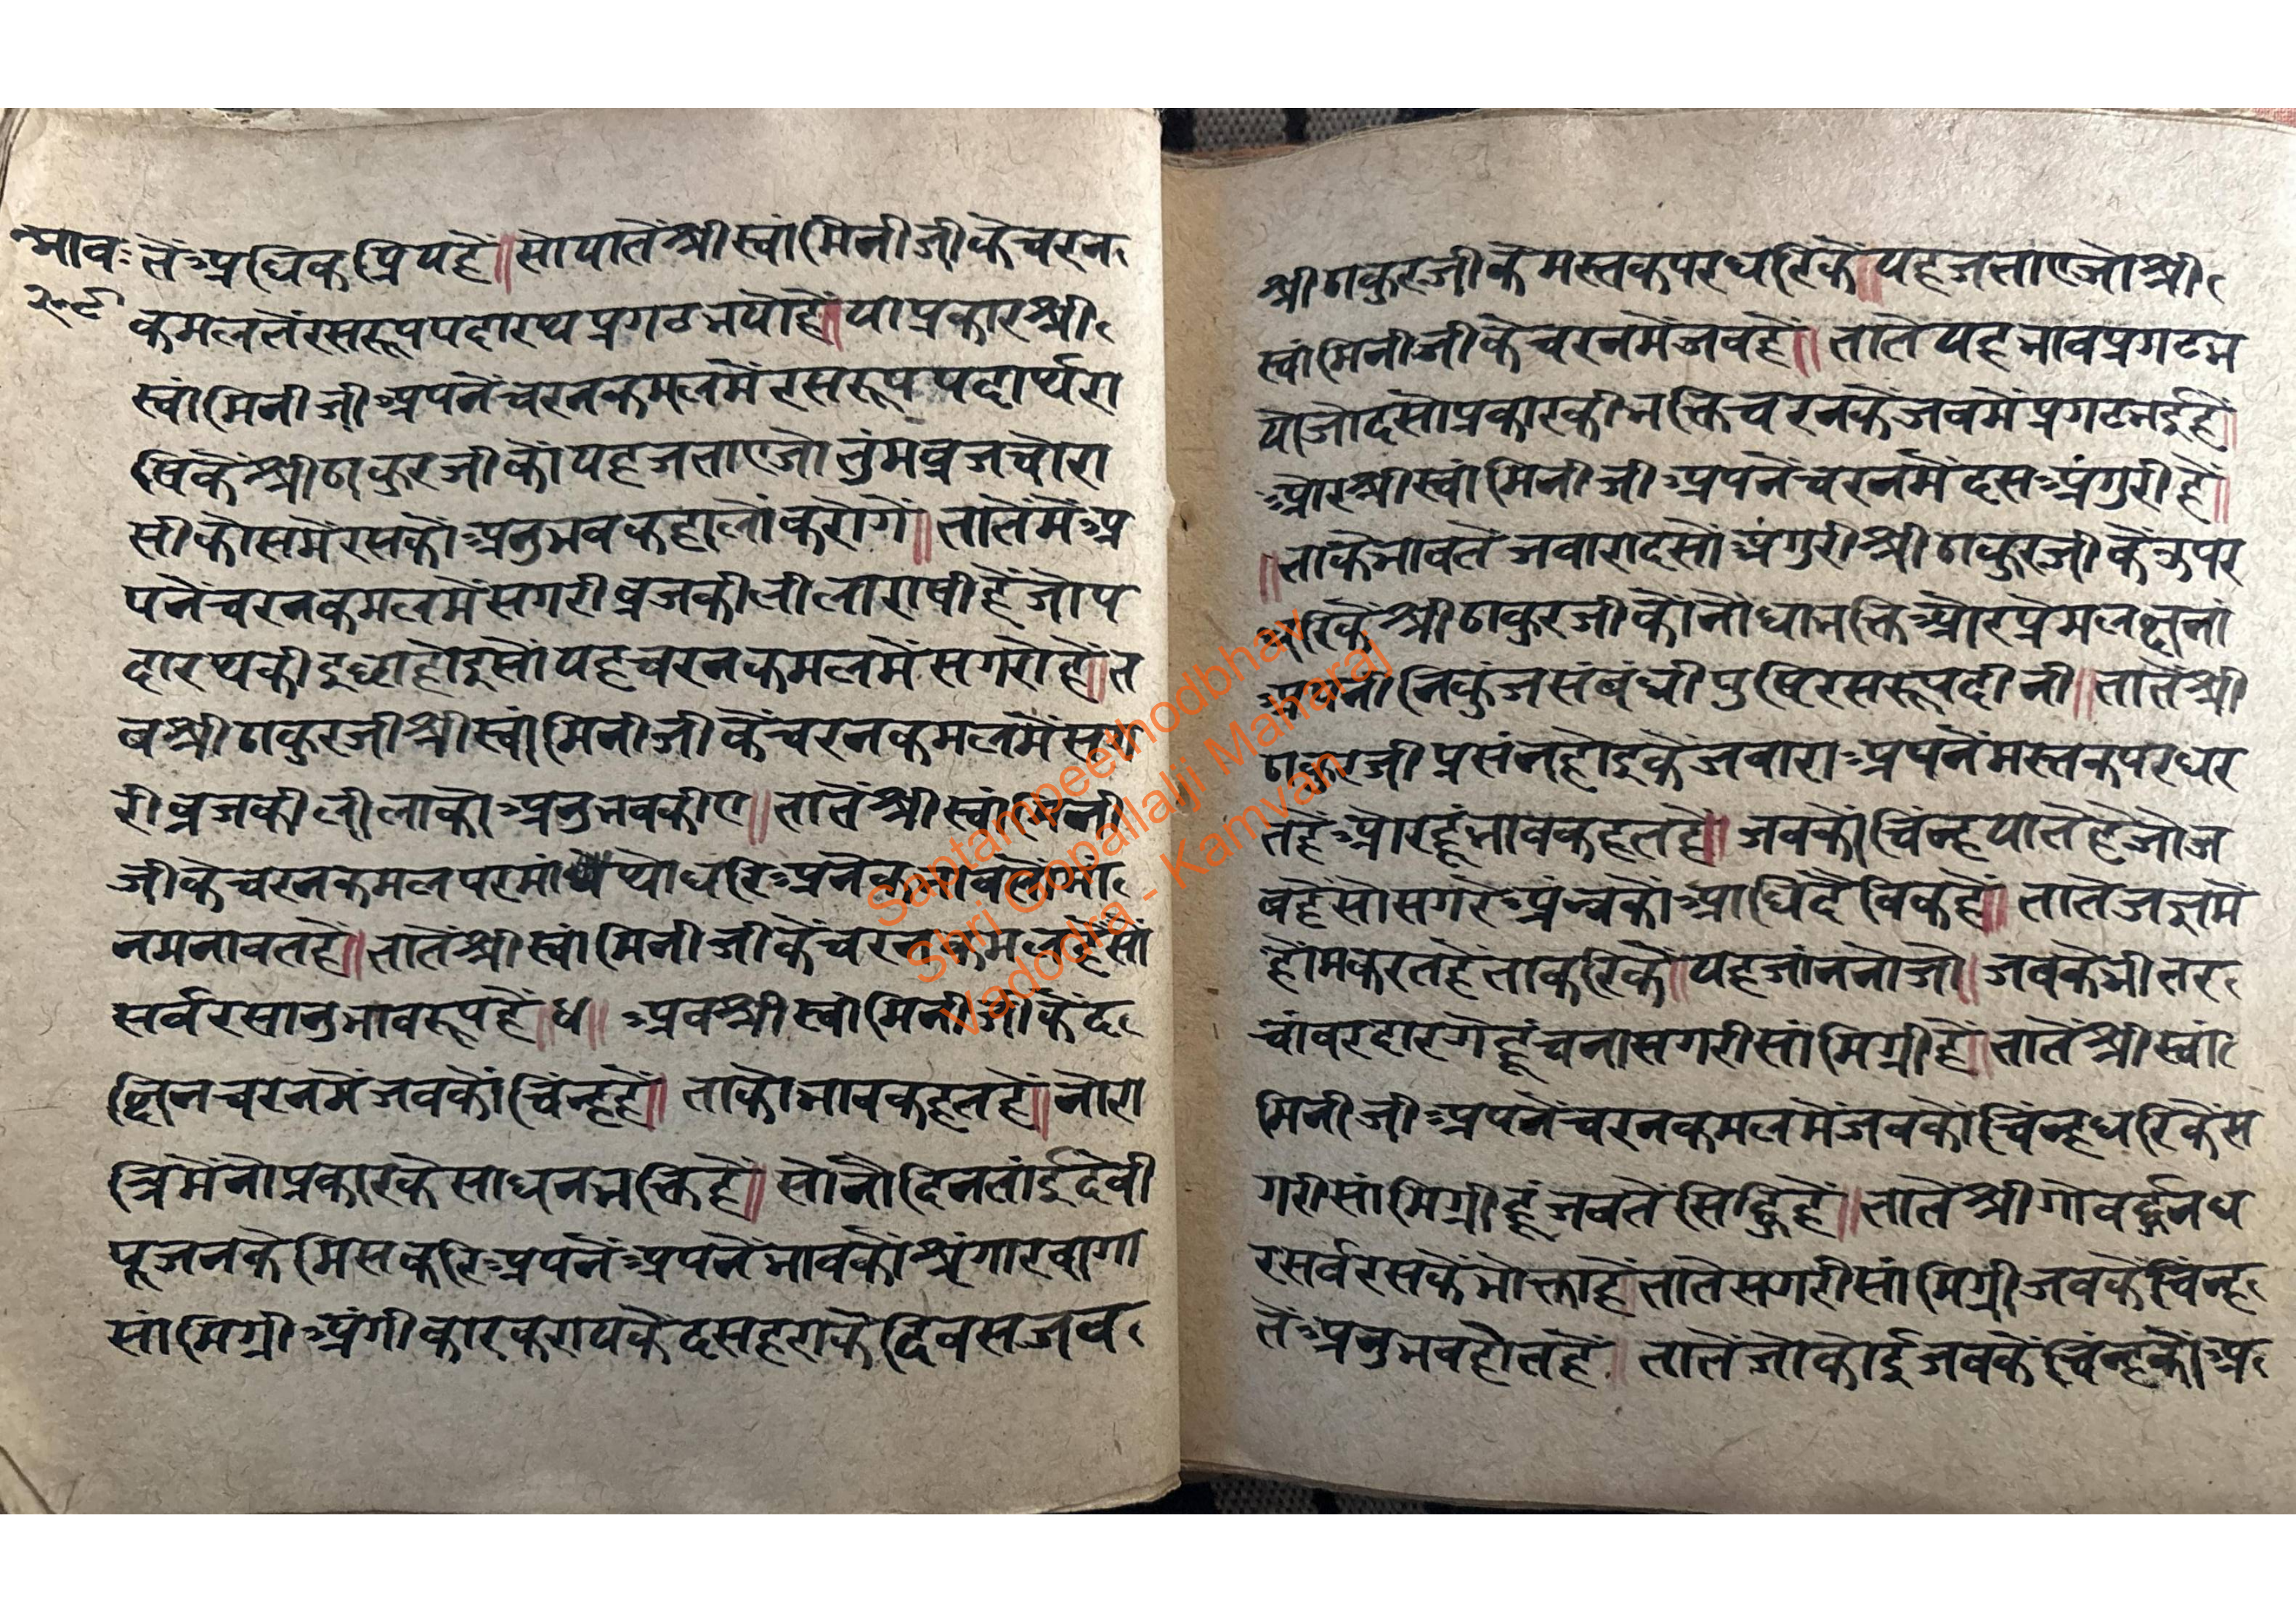 भाव॰
२०९
तेंअधिकप्रियहें॥सोयातेंश्रीस्वांमिनीजीकेचरन
कमलतेंरसरूपपदारथप्रगटभयोहें॥याप्रकारश्री
स्वांमिनीजीअपनेंचरनकमलमेंरसरूपपदार्थरा
षिकेंश्रीठाकुरजीकोंयहजताएजोतुंमव्रजचोरा
सीकोसमेंरसकोंअनुभवकहालोंकरोगें॥तातेंमेंअ
पनेंचरनकमलमेंसगरीव्रजकीलीलाराषीहेंजोप
दारथकीइछाहोइसोंयहचरनकमलमेंसगरोहें॥त
बश्रीठाकुरजीश्रीस्वांमिनीजीकेंचरनकमलमेंसग
रीव्रजकीलीलाकोअनुभवकीए॥तातेंश्रीस्वांमिनी
जीकेचरनकमलपरमांथोधरिअनेक
नमनावतहें॥तातेंश्रीस्वांमिनीजीकेंचरनकमलहेंसों
सर्वरसानुभावरूपहें॥ध॥अवश्रीस्वांमिनीजीकेंद
छिनचरनमेंजवकोंचिंन्हहें॥ताकोभावकहतहें॥नोरा
त्रिमेंनोप्रकारकेसाधनभक्तिहें॥सोनोंदिनतांईदेवी
पूजनकेमिसकरिअपनेंअपनेंभावकोंश्रंगारवागा
सांमिग्रीअंगीकारकरायकेंदसहराकेदिवसजव
श्रीठाकुरजीकेमस्तकपरधरिकें॥यहजताएजोश्री
स्वांमिनीजीकेचरनमेंजवहें॥तातेयहभावप्रगटभ
योजोदसोप्रकारकीभक्तिचरनकेंजवमेंप्रगटभईहें॥
औरश्रीस्वांमिनीजीअपनेंचरनमेंदसअंगुरीहें॥
॥ताकेभावतेंजवारादसोंअंगुरीश्रीठाकुरजीकेंऊपर
धरिकेंश्रीठाकुरजीकोंनोधाभक्तिऔरप्रेमलक्षनां
अपनीनिकुंजसंबंधीपुष्टिरसरूपदीनी॥तातेंश्री
ठाकुरजीप्रसंनहोइकेंजवाराअपनेंमस्तकपरधर
तहेंऔरहूंभावकहतहें॥जवकोंचिंन्हयातेंहेंजोज
वहेंसोसगरेअंन्नकोंआधिदैविकहें॥तातेंजज्ञमें
होंमकरतहेंताकरिकें॥यहजांननोजो॥जवकेभीतर
चांवरदारगेहूंचनासगरीसांमिग्रीहें॥तातेंश्रीस्वां
मिनीजीअपनेंचरनकमलमेंजवकोंचिंन्हधरिकेंस
गरीसांमिग्रीहूंजवतेंसिद्धिहें॥तातेंश्रीगोवर्द्धनध
रसर्वरसकेंभोक्ताहेंतातेसगरीसांमिग्रीजवकेंचिंन्ह
तेंअनुभवहोतहें॥तातेंजोकोईजवकेंचिंन्हकोंअ
Saptampeethodbhav
Shri Gopallalji Maharaj
Vadodra - Kamvan